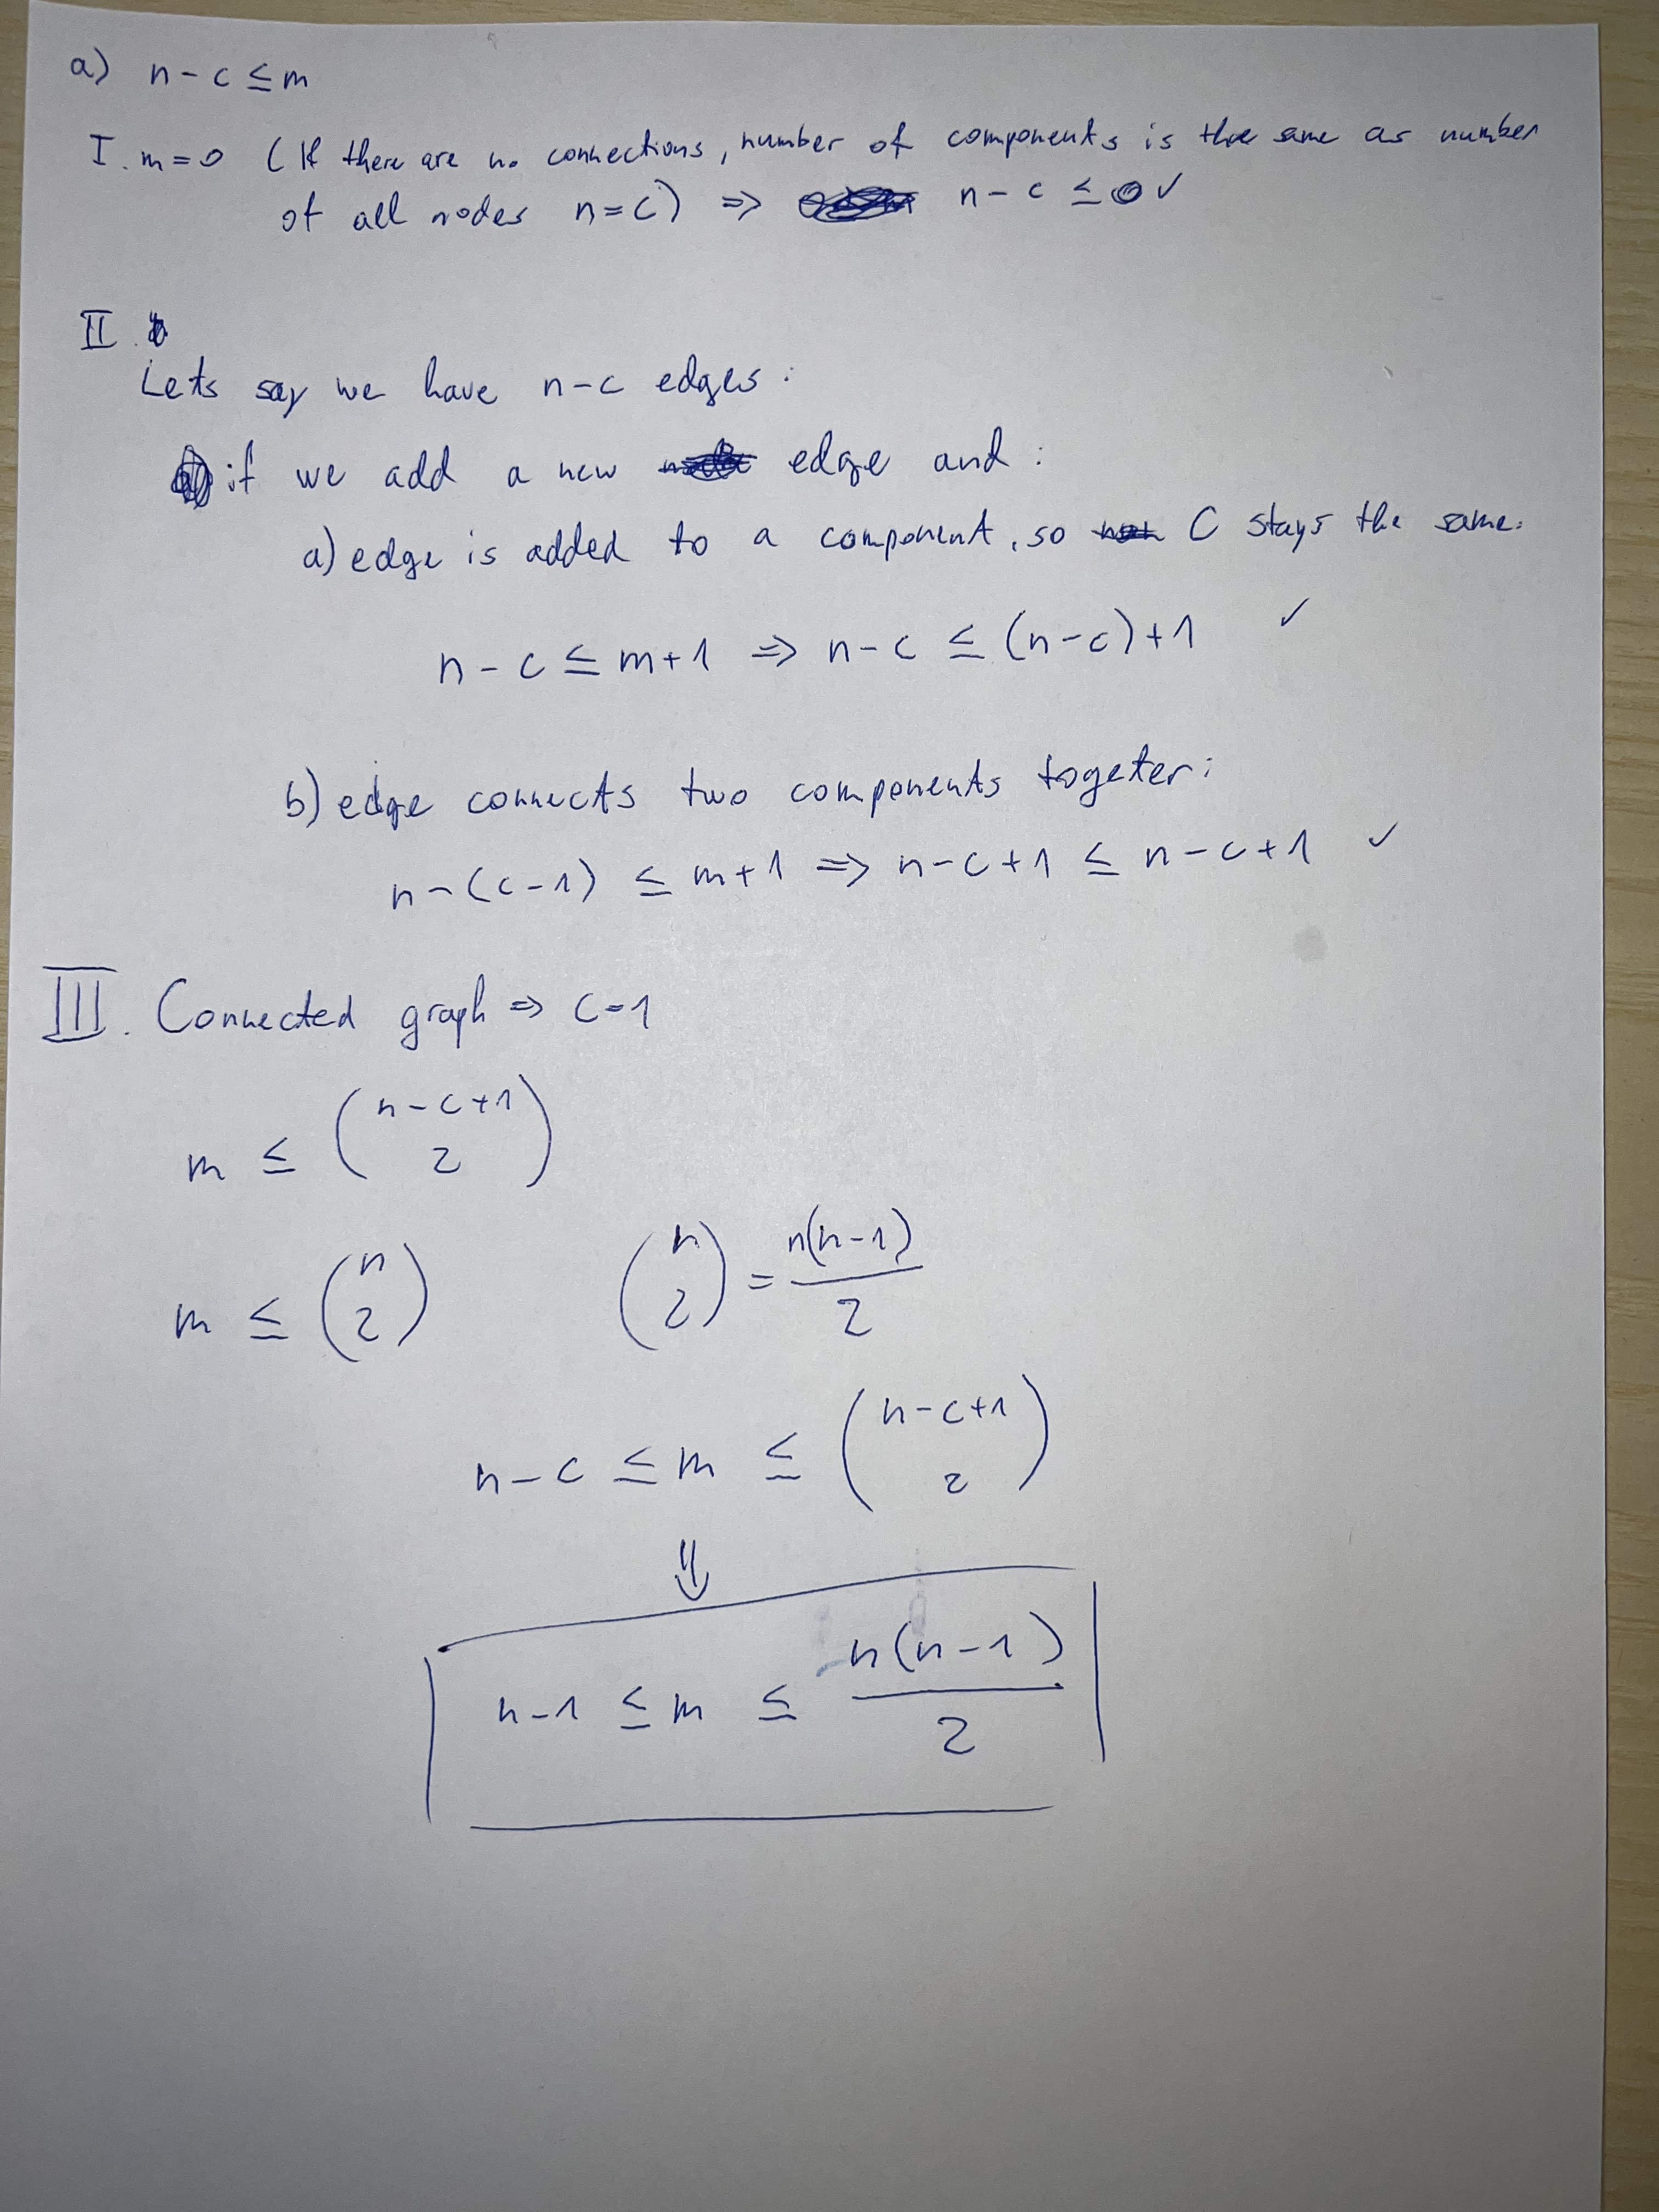 a) n - c ≤ m
I. m = 0 (If there are no connections, number of components is the same as number
of all nodes n = c) ⇒ n - c ≤ 0 ✓
II.
Lets say we have n-c edges:
if we add a new edge and:
a) edge is added to a component, so C stays the same.
n - c ≤ m+1 ⇒ n - c ≤ (n-c)+1 ✓
b) edge connects two components togeter:
n - (c-1) ≤ m+1 ⇒ n-c+1 ≤ n-c+1 ✓
III. Connected graph ⇒ c=1
m ≤ (n-c+1
2)
m ≤ (n
2) (n
2) = n(n-1)
2
n-c ≤ m ≤ (n-c+1
2)
⇓
n-1 ≤ m ≤ n(n-1)
2